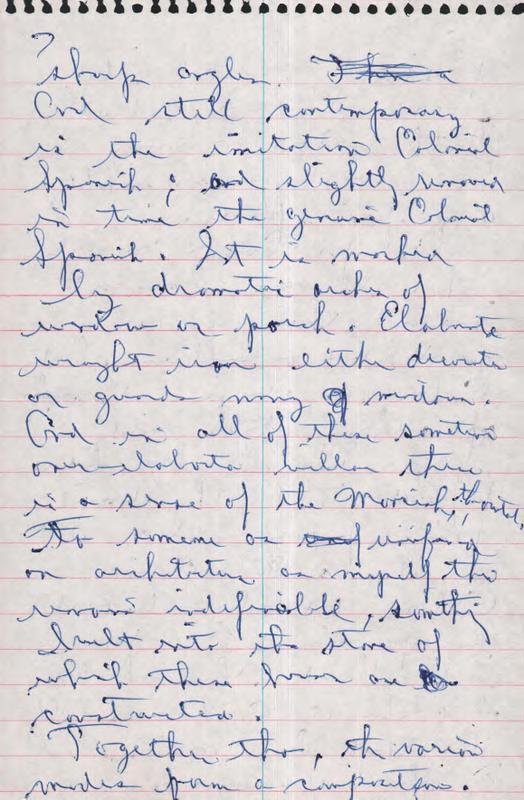 ?
sharp angles.
And still contemporary
is the imitation Colonial
Spanish; and slightly removed
in time the genuine Colonial
Spanish. It is marked
by dramatic arches of
window or porch. Elaborate
wrought iron either decorates
or guards many windows.
And in all of these sometimes
over-elaborate villas there
is a sense of the Moorish,
To someone as
on architecture as myself this
remains indefinable, something
built into the stone of
which these houses are
constructed.
Together tho, the various
modes form a composition.